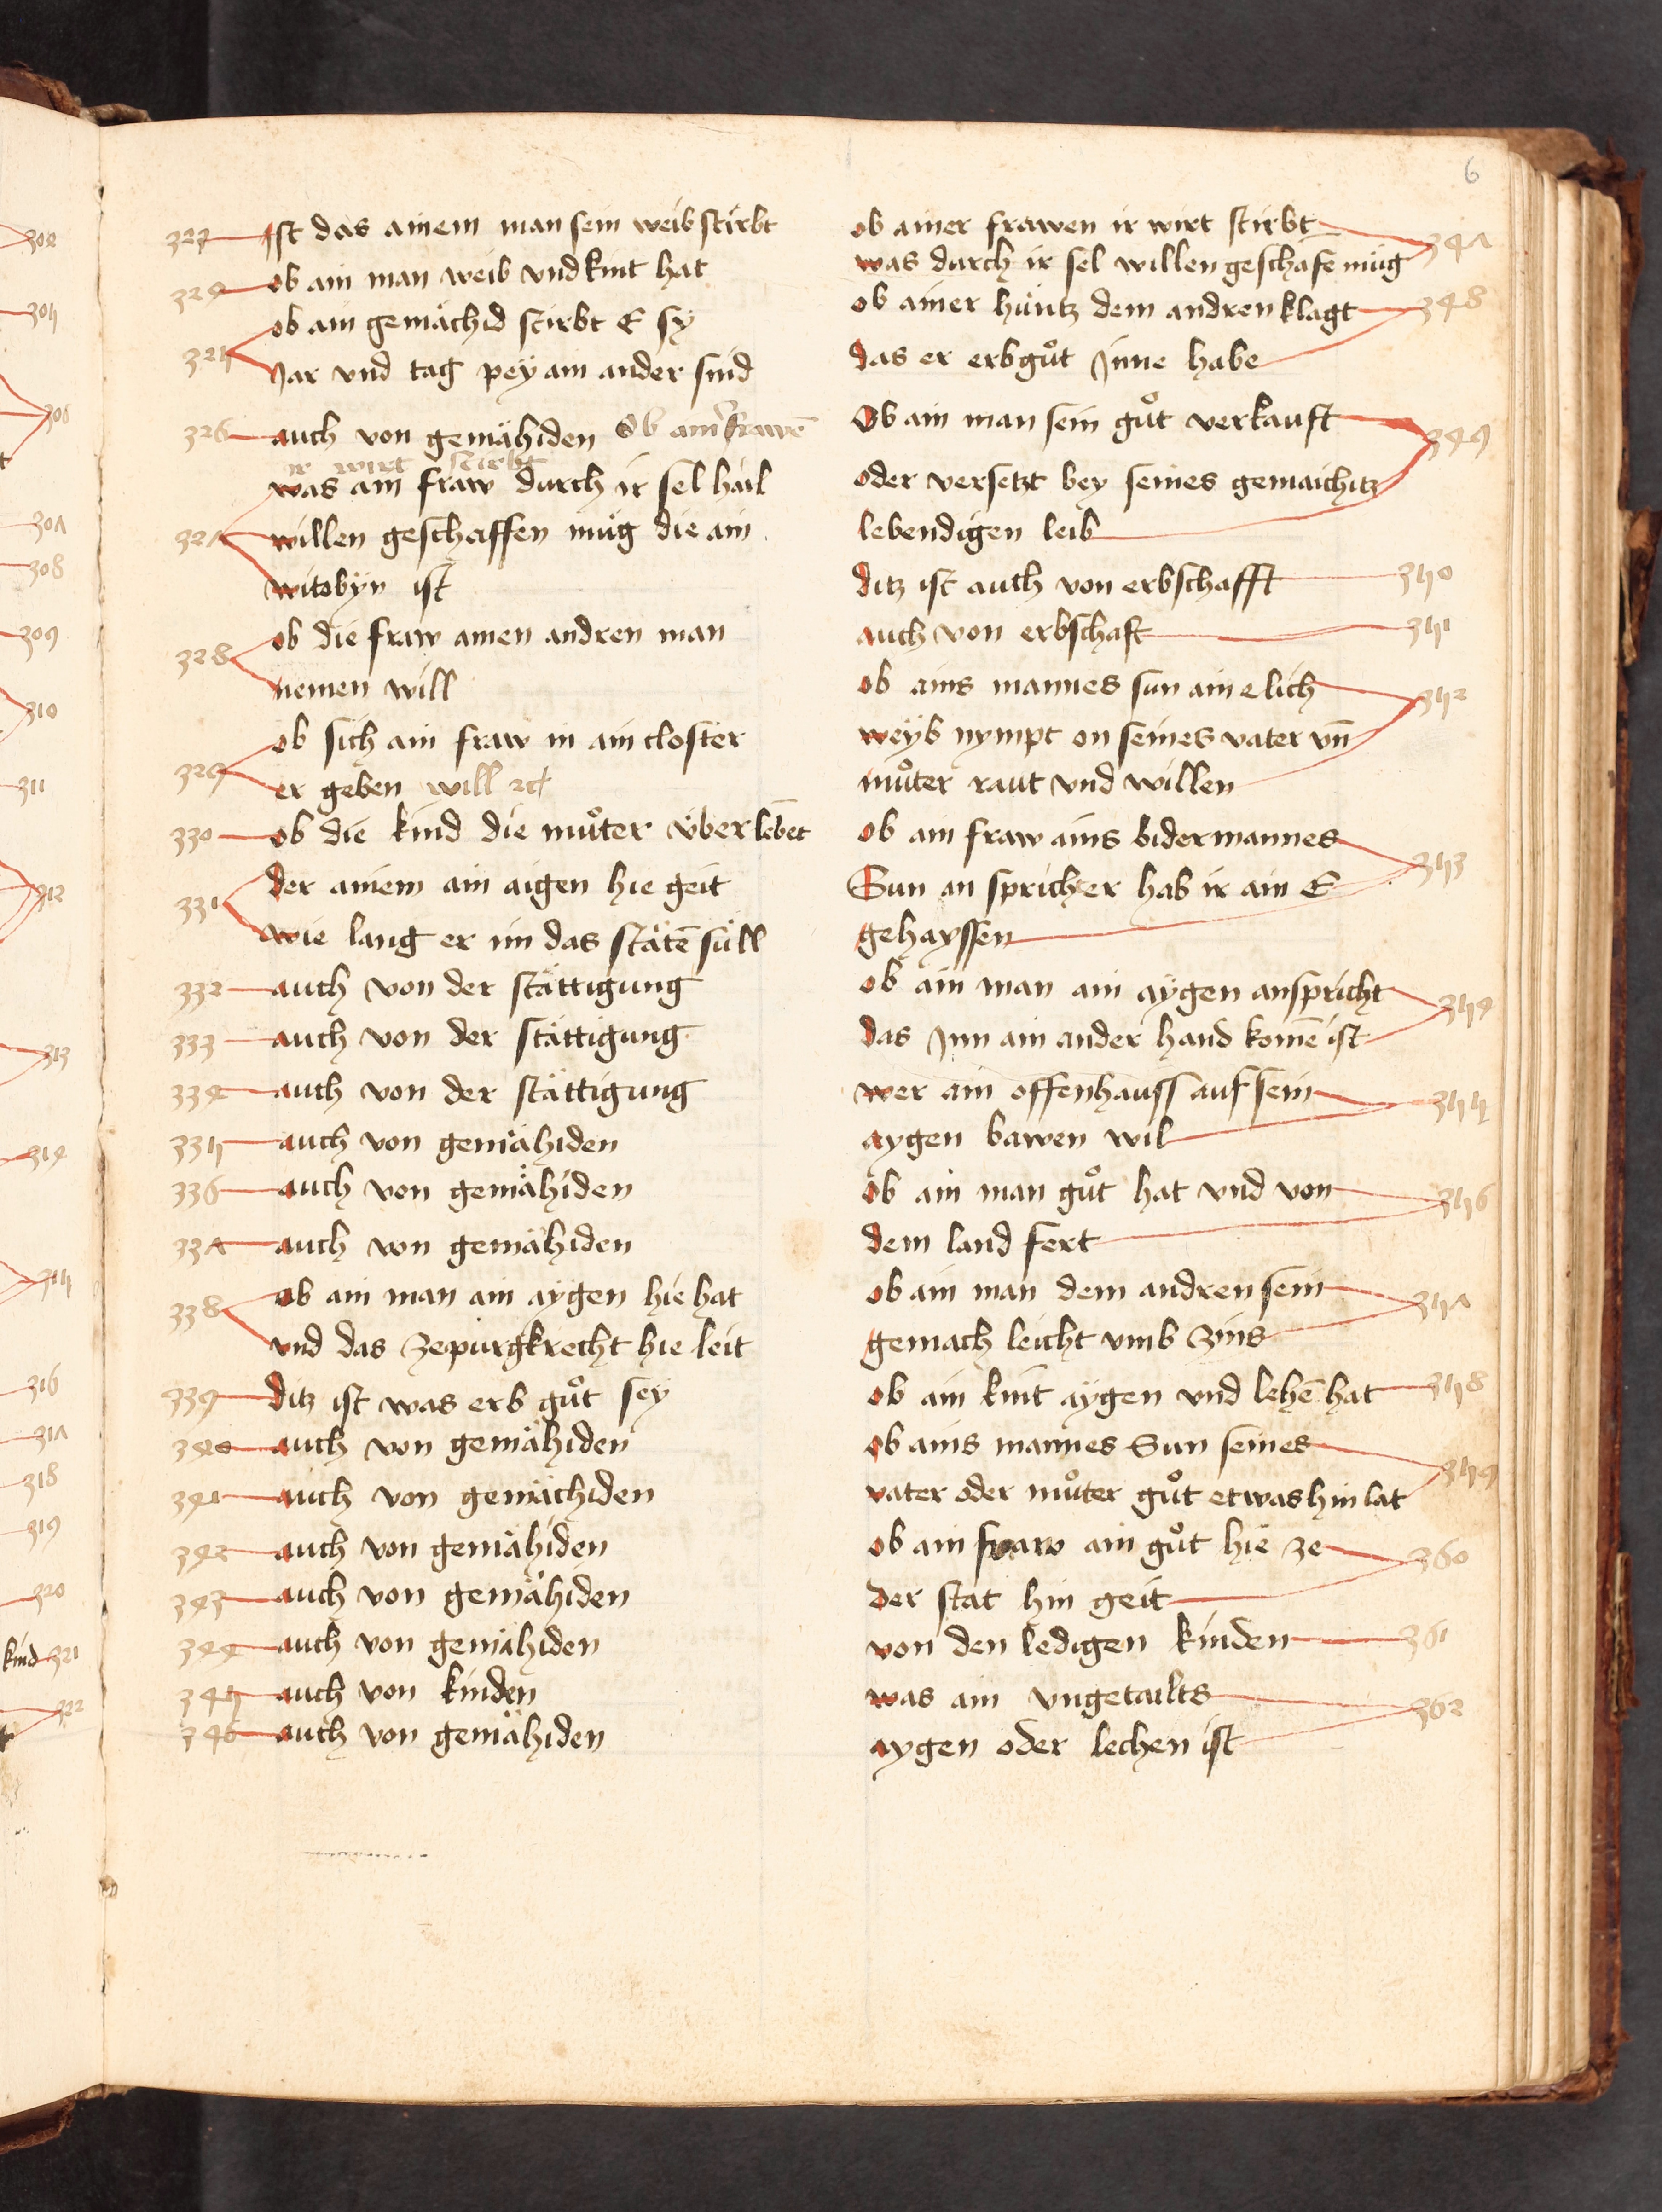 6
323 Ist das ainem man sein weib stirbt
324 ob ain man weib vnd kint hat
ob ain gemächid stirbt E sy
325
Jar vnd tag pey ain ander sind
326 auch von gemähiden Ob ainer frawē
ir wirt stirbt
was ain fraw durch ir sel hail
327 willen geschaffen müg die ain
witobyn ist
ob die fraw ainen andren man
328
nemen will
ob sich ain fraw in ain closter
329
er geben will
330 ob die kind die muͦter überlebēt
der ainem ain aigen hie geit
331
wie lang er im das stätē süll
332 auch von der stättigung
333 auch von der stättigung
334 auch von der stättigung
335 auch von gemähiden
336 auch von gemähiden
337 auch von gemähiden
338 ob ain man ain aygen hie hat
vnd das ze purgkrecht hie leit
339 ditz ist was erb guͦt sey
340 auch von gemähiden
341 auch von gemächiden
342 auch von gemähiden
343 auch von gemähiden
344 auch von gemähiden
345 auch von kinden
346 auch von gemähiden
ob ainer frawen ir wirt stirbt 347
was durch ir sel willen geschafē müg
ob ainer hüntz dem andren klagt 348
das er erbguͦt Jnne habe
Ob ain man sein guͦt verkauft 349
oder versetzt bey seines gemaichitz
lebendigen leib
ditz ist auch von erbschafft 350
auch von erbschaft 351
ob ains mannes sun ain elich 352
weyb nympt on seines vater vn̄
muͦter raut vnd willen
ob ain fraw ains bidermannes
353
Sun an sprich er hab ir ain E
gehayssen
ob ain man ain aygen anspricht 354
das Jnn ain ander hand komē ist
wer ain offenhauss auf sein 355
aygen bawen wil
ob ain man guͦt hat vnd von 356
dem land fert
ob ain man dem andren sein 357
gemach leicht vmb zins
ob ain kint aygen vnd lehē hat 358
ob ains mannes Sun seines 359
vater oder muͦter guͦt etwas hin lat
ob ain fraw ain guͦt hie ze 360
der stat hin geit
von den ledigen kinden 361
was ain vngetailts 362
aygen oder lechen ist
304
305
306
307
308
309
310
311
312
313
314
315
316
317
318
319
320
kind 321
322